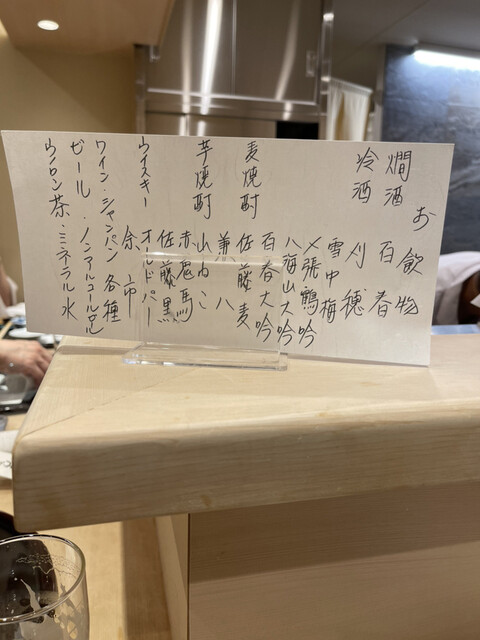 お飲物
燗酒 百春
冷酒 刈穂
雪中梅
〆張鶴吟
八海山大吟
百春大吟
麦焼酎 佐藤麦
兼八
芋焼酎 山ねこ
赤鬼馬
佐藤黒
ウイスキー オールドパー
余市
ワイン・シャンパン各種
ビール・ノンアルコール
ウーロン茶・ミネラル水